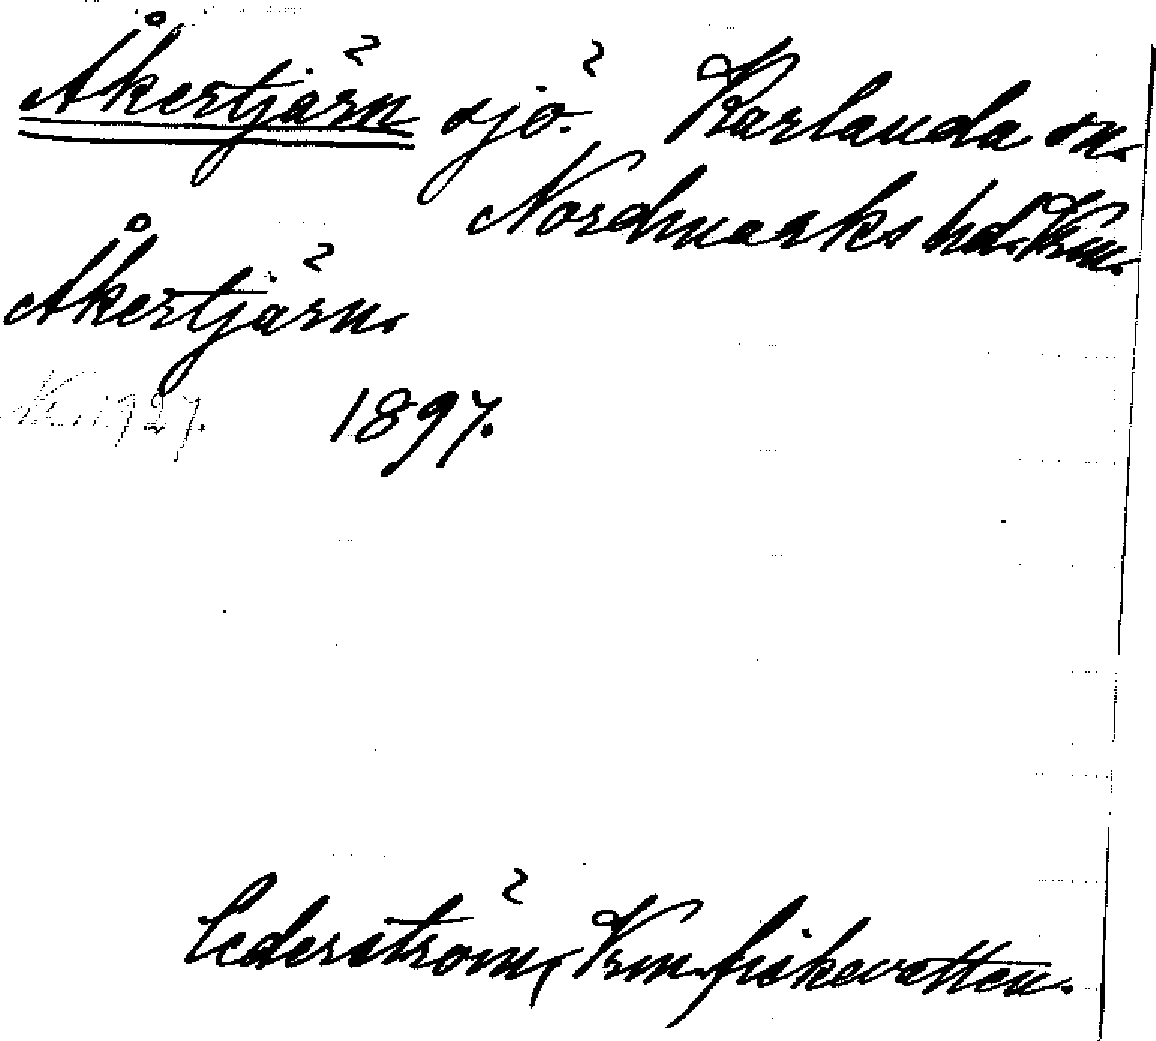 Åkertjärn sjö. Karlanda sn.
Nordmarks hd. Vrm.
Åkertjärn.
1927. 1897.
Cederström, Vrm. fiskevatten.